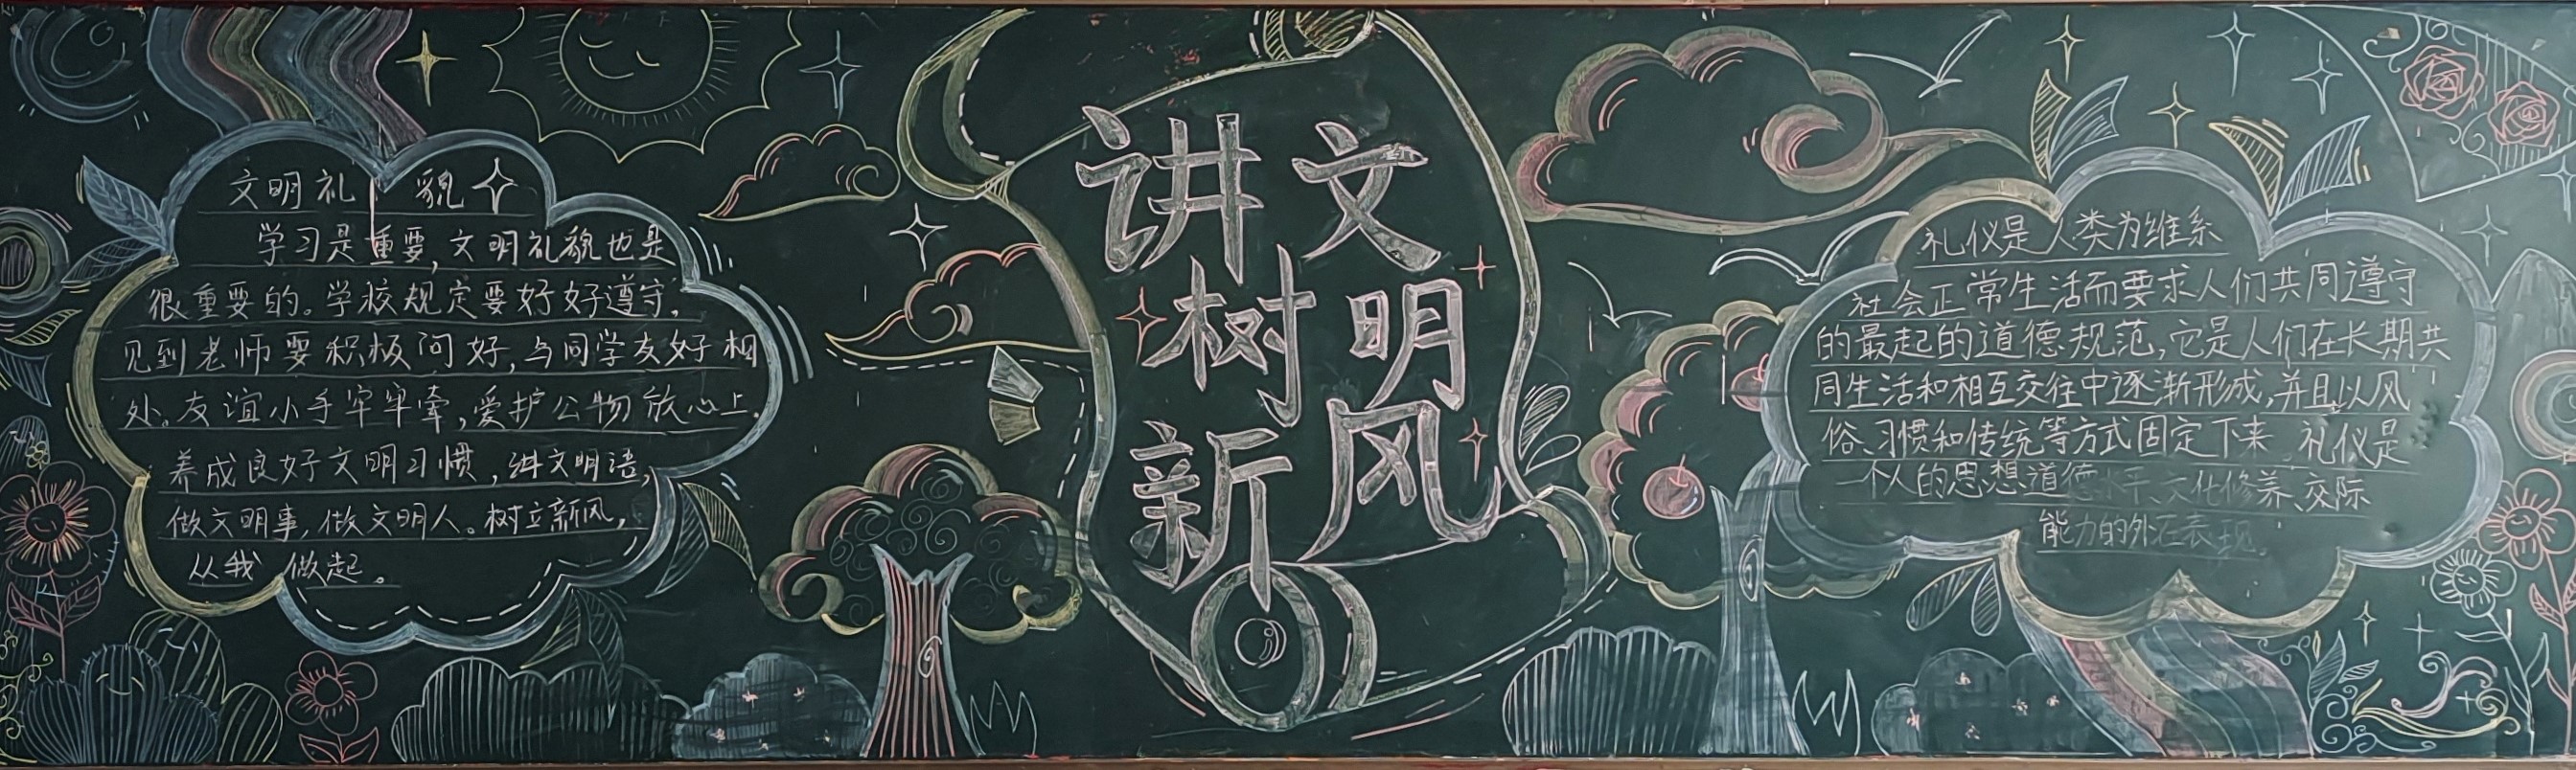 文明礼貌
学习是重要,文明礼貌也是
很重要的。学校规定要好好遵守,
见到老师要积极问好,与同学友好相
处。友谊小手牢牢牵,爱护公物放心上。
养成良好文明习惯,讲文明语,
做文明事,做文明人。树立新风,
从我做起。
讲文明
树新风
礼仪是人类为维系
社会正常生活而要求人们共同遵守
的最起的道德规范,它是人们在长期共
同生活和相互交往中逐渐形成,并且以风
俗、习惯和传统等方式固定下来.礼仪是
一个人的思想道德水平、文化修养、交际
能力的外在表现.